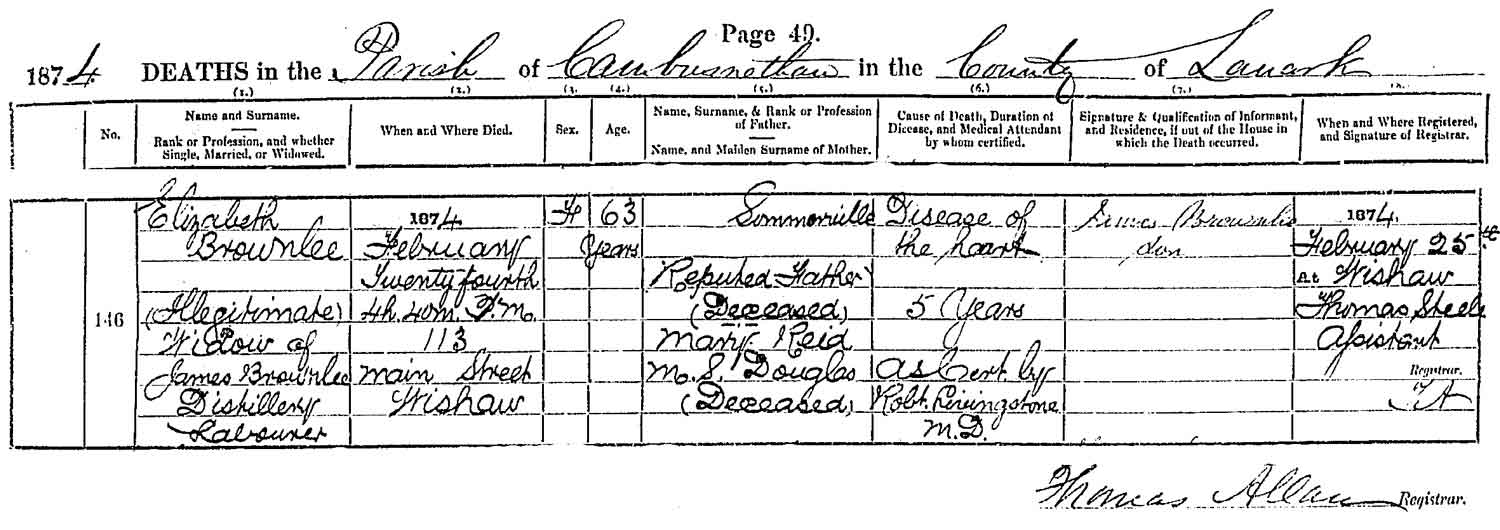 Page 49.
1874. DEATHS in the Parish of Cambusnethan in the County of Lanark
(1.) (2.) (3. (4.) (5.) (6.) (7.) (8.
No.
Name and Surname.
Rank or Profession, and whether
Single, Married, or Widowed.
When and Where Died.
Sex.
Age.
Name, Surname, & Rank or Profession
of Father.
Name, and Maiden Surname of Mother.
Cause of Death, Duration of
Disease, and Medical Attendant
by whom certified.
Signature & Qualification of Informant,
and Residence, if out of the House in
which the Death occurred.
When and Where Registered,
and Signature of Registrar.
146
Elizabeth
Brownlee
(Illegitimate)
Widow of
James Brownlee
Distillery
Labourer
1874
February
Twenty fourth
4h. 40m. P.M.
113
Main Street
Wishaw
F
63
Years
Sommerville
Reputed Father
(Deceased)
Mary Reid
M.S. Douglas
(Deceased)
Disease of
the heart
5 Years
As Cert. by
Robt. Livingstone
M.D.
James Brownlie
son
1874.
February 25th
At Wishaw
Thomas Steele
Assistant
Registrar.
Thomas Allan Registrar.